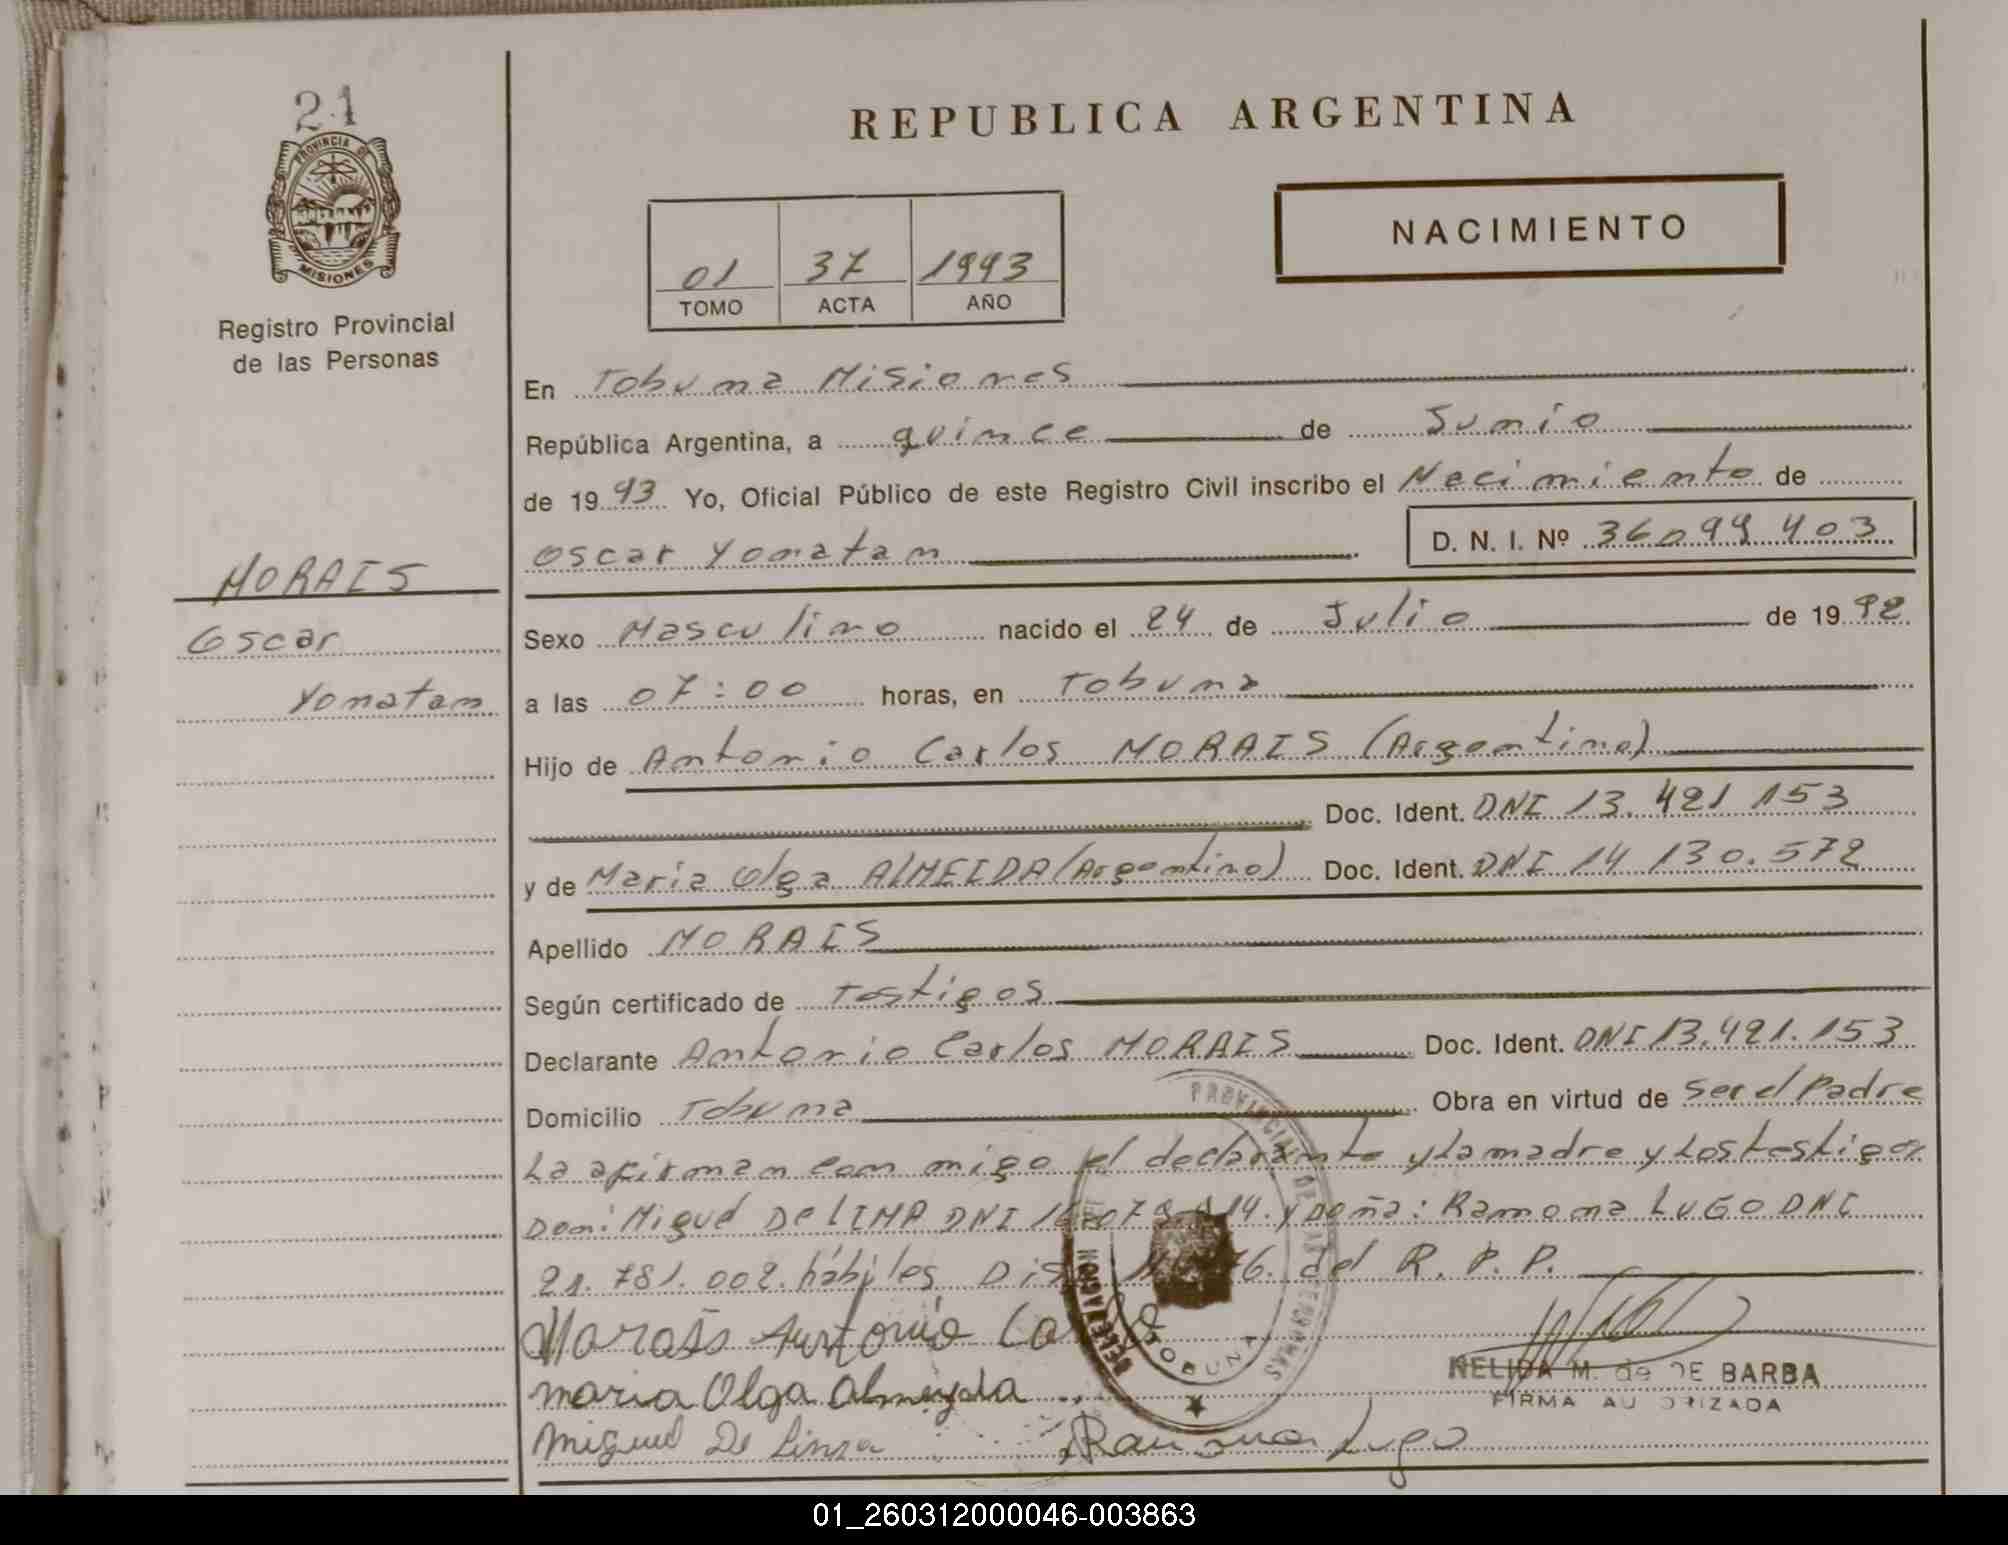 21
PROVINCIA DE
MISIONES
Registro Provincial
de las Personas
MORAIS
Oscar
Yonatan
REPUBLICA ARGENTINA
NACIMIENTO
01 37 1993
TOMO ACTA AÑO
En Tobuna Misiones
República Argentina, a quince de Junio
de 1993 Yo, Oficial Público de este Registro Civil inscribo el Nacimiento de
Oscar Yonatan D. N. I. Nº 36099403
Sexo Masculino nacido el 24 de Julio de 1992
a las 07:00 horas, en Tobuna
Hijo de Antonio Carlos MORAIS (Argentino)
Doc. Ident. DNI 13.421 153
y de Maria Olga ALMEIDA (Argentino) Doc. Ident. DNI 14 130.572
Apellido MORAIS
Según certificado de Testigos
Declarante Antonio Carlos MORAIS Doc. Ident. DNI 13.421.153
Domicilio Tobuna Obra en virtud de ser el Padre
La afirman con migo el declarante y la madre y los testigos
Don: Miguel De LIMA DNI y Doña: Ramona LUGO DNI
21.781.002. hábiles del R. P. P.
Morais Antonio
Maria Olga Almeyda
Miguel De Lima Ramona Lugo
NELIDA M. de DE BARBA
FIRMA AUTORIZADA
PROVINCIAL DE LAS PERSONAS
DELEGACION
TOBUNA
01_260312000046-003863